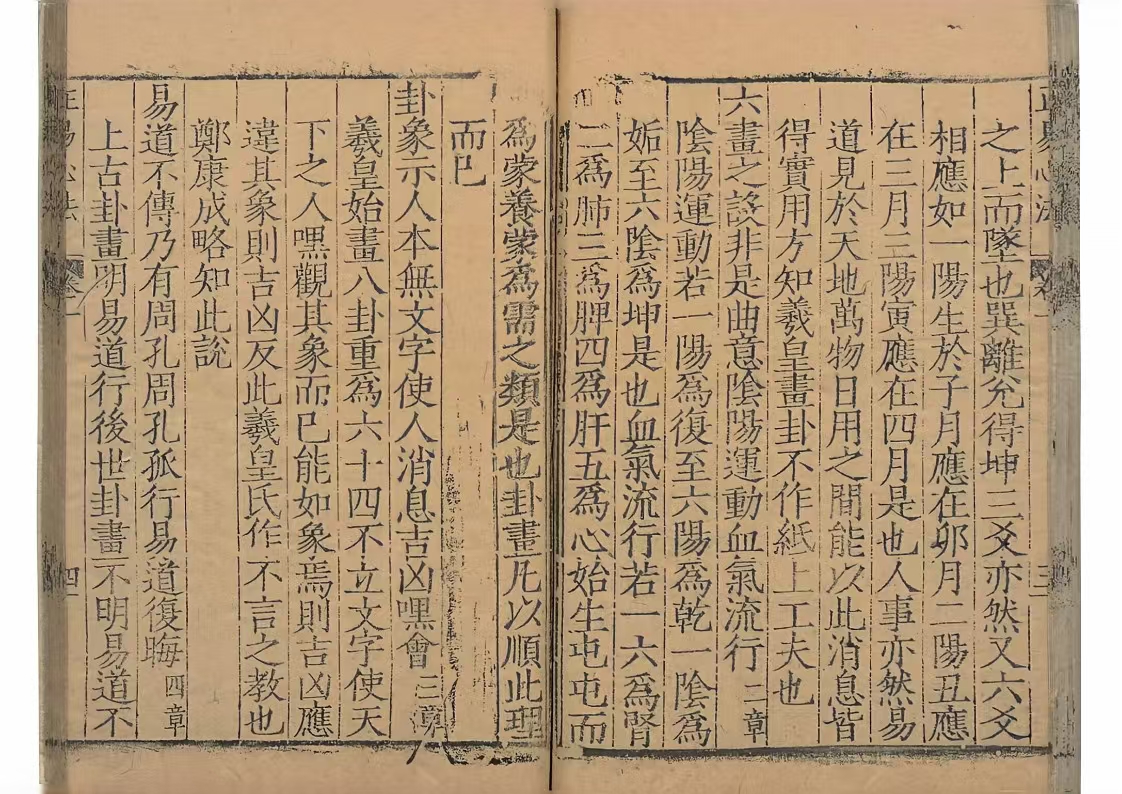 正易心法 卷一 三
之上而墜也巽離兊得坤三爻亦然又六爻
相應如一陽生於子月應在卯月二陽丑應
在三月三陽寅應在四月是也人事亦然易
道見於天地萬物日用之間能以此消息皆
得實用方知羲皇畫卦不作紙上工夫也
六畫之設非是曲意陰陽運動血氣流行 二章
陰陽運動若一陽為復至六陽為乾一陰為
姤至六陰為坤是也血氣流行若一六為腎
二為肺三為脾四為肝五為心始生屯屯而
為蒙養蒙為需之類是也卦畫凡以順此理
而已
卦象示人本無文字使人消息吉凶嘿會 三章
羲皇始畫八卦重為六十四不立文字使天
下之人嘿觀其象而已能如象焉則吉凶應
違其象則吉凶反此羲皇氏作不言之教也
鄭康成略知此說
易道不傳乃有周孔周孔孤行易道復晦 四章
上古卦畫明易道行後世卦畫不明易道不
正易心法 卷一 四